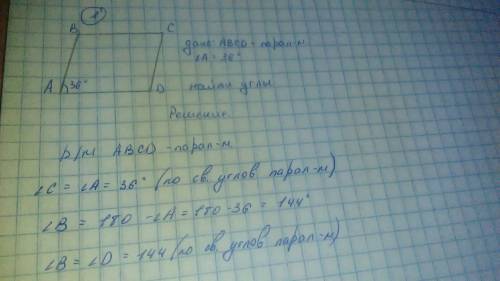 1
B C
дано: ABCD - парал-м
∠A = 36°
A 36° D
найти углы
Решение
Р/м ABCD - парал-м
∠C = ∠A = 36° (по св. углов парал-м)
∠B = 180 - ∠A = 180 - 36 = 144°
∠B = ∠D = 144 (по св. углов парал-м)